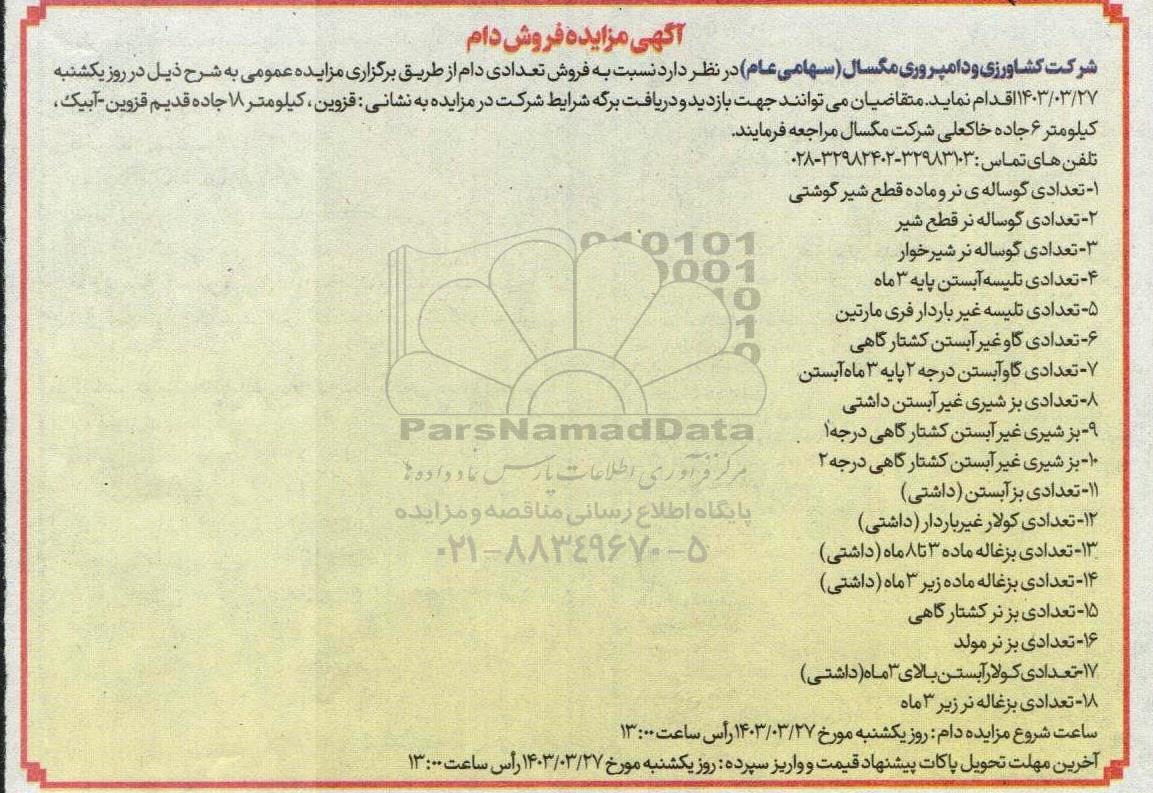 آگهی مزایده فروش دام
شرکت کشاورزی و دامپروری مگسال (سهامی عام) در نظر دارد نسبت به فروش تعدادی دام از طریق برگزاری مزایده عمومی به شرح ذیل در روز یکشنبه
۱۴۰۳/۰۳/۲۷ اقدام نماید. متقاضیان می توانند جهت بازدید و دریافت برگه شرایط شرکت در مزایده به نشانی : قزوین ، کیلومتر ۱۸ جاده قدیم قزوین -آبیک ،
کیلومتر ۶ جاده خاکعلی شرکت مگسال مراجعه فرمایند.
تلفن های تماس : ۳۲۹۸۳۱۰۳-۳۲۹۸۲۴۰۲-۰۲۸
۱- تعدادی گوساله ی نر و ماده قطع شیر گوشتی
۲- تعدادی گوساله نر قطع شیر
۳- تعدادی گوساله نر شیرخوار
۴- تعدادی تلیسه آبستن پایه ۳ ماه
۵- تعدادی تلیسه غیر باردار فری مارتین
۶- تعدادی گاو غیر آبستن کشتار گاهی
۷- تعدادی گاو آبستن درجه ۲ پایه ۳ ماه آبستن
۸- تعدادی بز شیری غیر آبستن داشتی
۹- بز شیری غیر آبستن کشتار گاهی درجه۱
۱۰- بز شیری غیر آبستن کشتار گاهی درجه ۲
۱۱- تعدادی بز آبستن (داشتی)
۱۲- تعدادی کولار غیرباردار (داشتی)
۱۳- تعدادی بزغاله ماده ۳ تا ۸ ماه (داشتی)
۱۴- تعدادی بزغاله ماده زیر ۳ ماه (داشتی)
۱۵- تعدادی بز نر کشتار گاهی
۱۶- تعدادی بز نر مولد
۱۷-تعدادی کولار آبستن بالای ۳ ماه (داشتی)
۱۸- تعدادی بزغاله نر زیر ۳ ماه
ساعت شروع مزایده دام : روز یکشنبه مورخ ۱۴۰۳/۰۳/۲۷ رأس ساعت ۱۳:۰۰
آخرین مهلت تحویل پاکات پیشنهاد قیمت و واریز سپرده : روز یکشنبه مورخ ۱۴۰۳/۰۳/۲۷ رأس ساعت ۱۳:۰۰
ParsNamadData
مرکز فرآوری اطلاعات پارس نماد داده ها
پایگاه اطلاع رسانی مناقصه و مزایده
۰۲۱-۸۸۳۴۹۶۷۰-۵